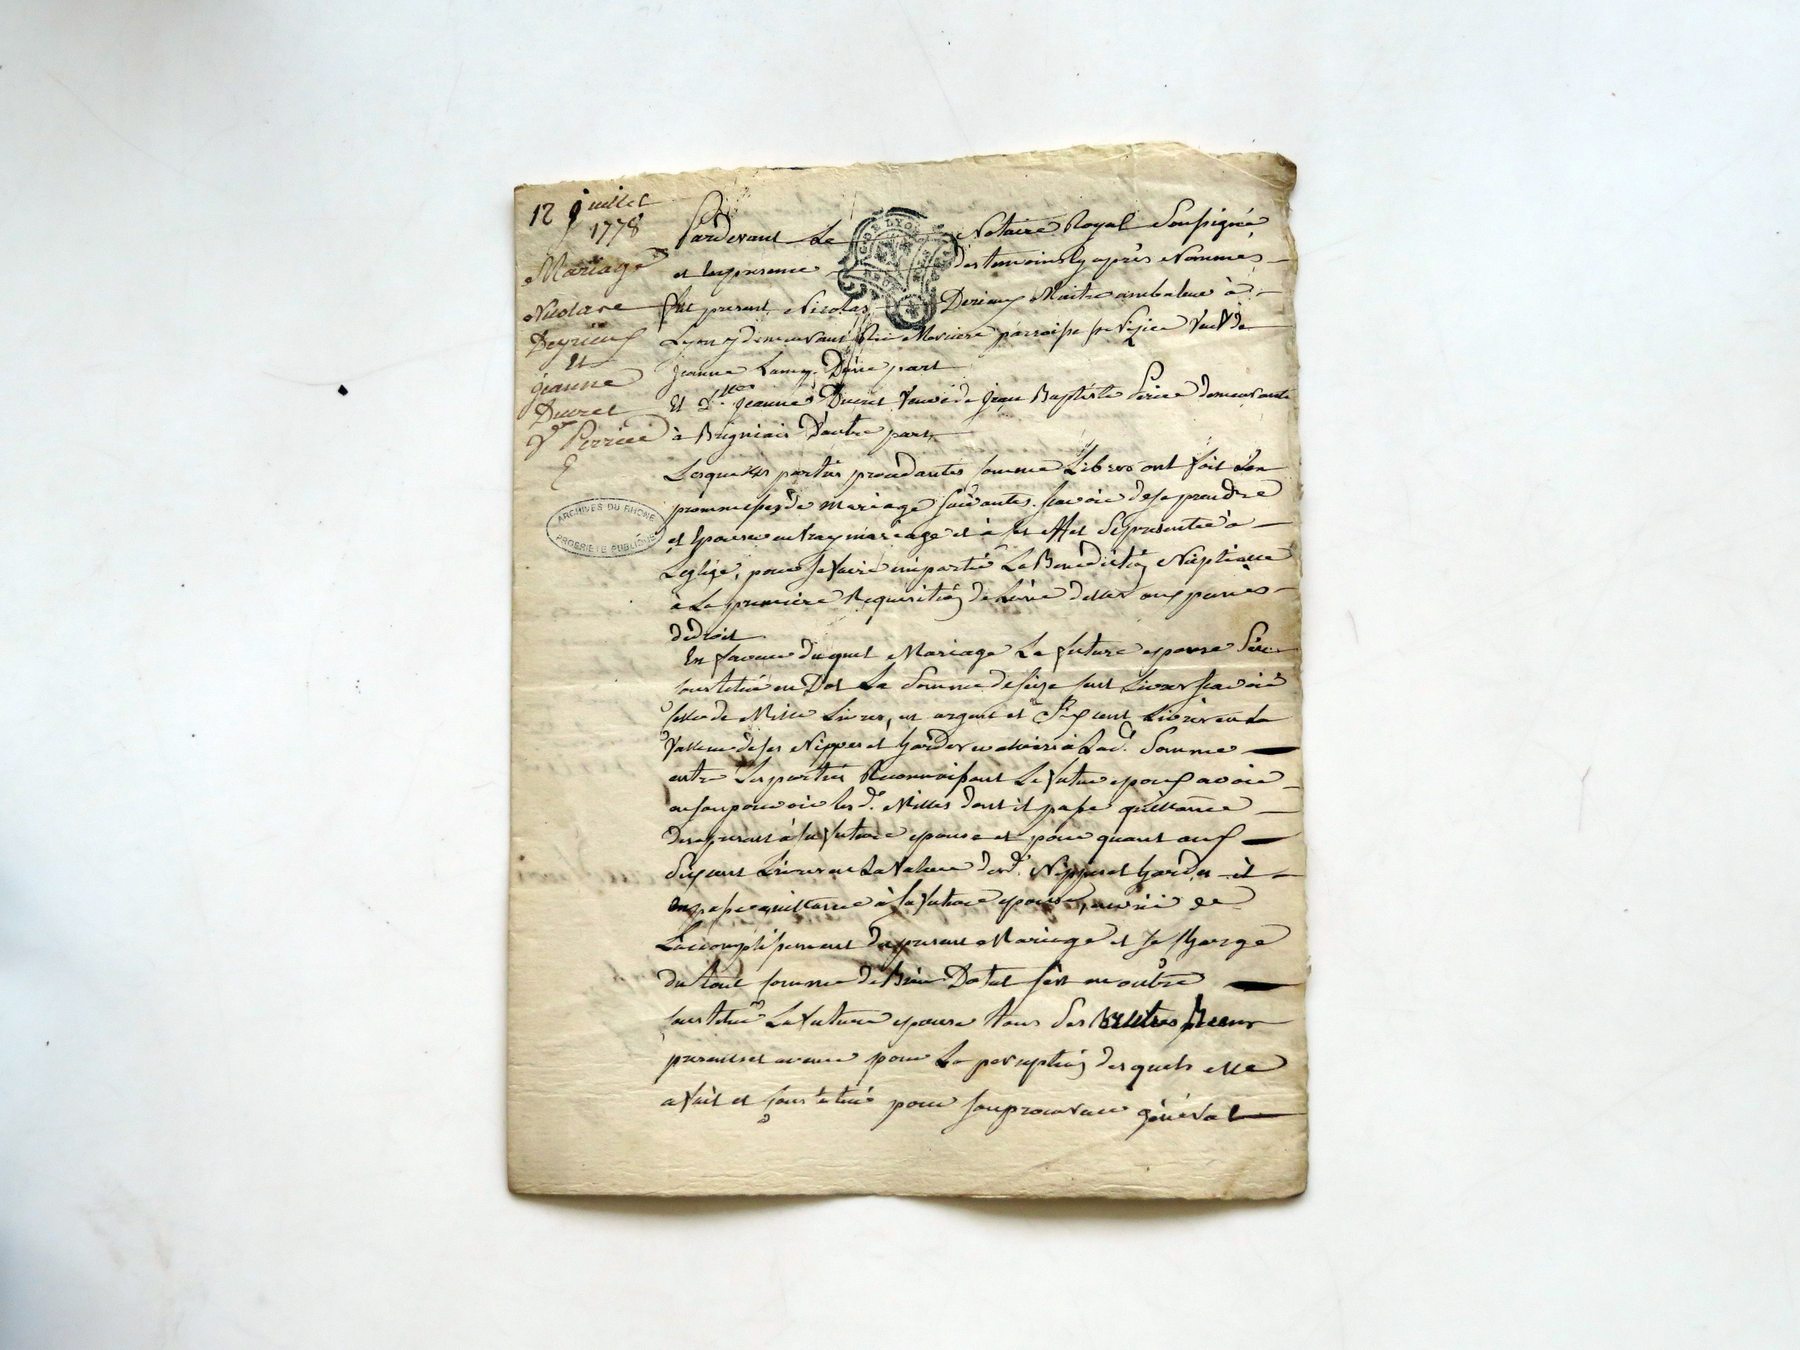 12 juillet
1778
Mariage
Nicolas
Deyrieux
et
Jeanne
Ducret
Ve Perrier
ARCHIVES DU RHONE
PROPRIETE PUBLIQUE
Pardevant Le Notaire Royal Soussigné
et en presence des temoins cy après Nommés
fut present Nicolas Derieux Maitre ambaleur à
Lyon y demeurant Rue Merciere parroisse st Nizier veuf de
Jeanne Lamy D'une part
Et Jeanne Ducret veuve de jean Baptiste Perier demeurante
à Brigniais D'autre part
Lesquelles parties procedantes comme Libres ont fait Les
promesses de mariage suivantes scavoir de se prendre
et Epouser en vray mariage et à cet effet se presenter à
L'eglise, pour se faire impartir La Benediction Nuptialle
à La premiere Requisition de L'une d'elles aux peines
de droit
En faveur duquel Mariage La future epouse s'est
constitué en Dot La Somme de seize cent Livres scavoir
celle de Mille Livres, en argent et Six cent Livres en La
Valleur de ses Nippes et hardes Somme
entre Les parties Reconnoissant Le futur epoux avoir
en son pouvoir les d. Milles dont il passe quittance
des apresent à la future epouse et pour quant aux
Six cent Livres en La Valeur des d. Nippes et hardes il
en passe quittance à la future epouse,
L'accomplissement du present Mariage et se charge
du tout comme de Bien Dotal s'est en outre
constitué La future epouse tous Ses autres Biens
presents et avenir pour La perception desquels elle
a fait et constitué pour son procureur géneral